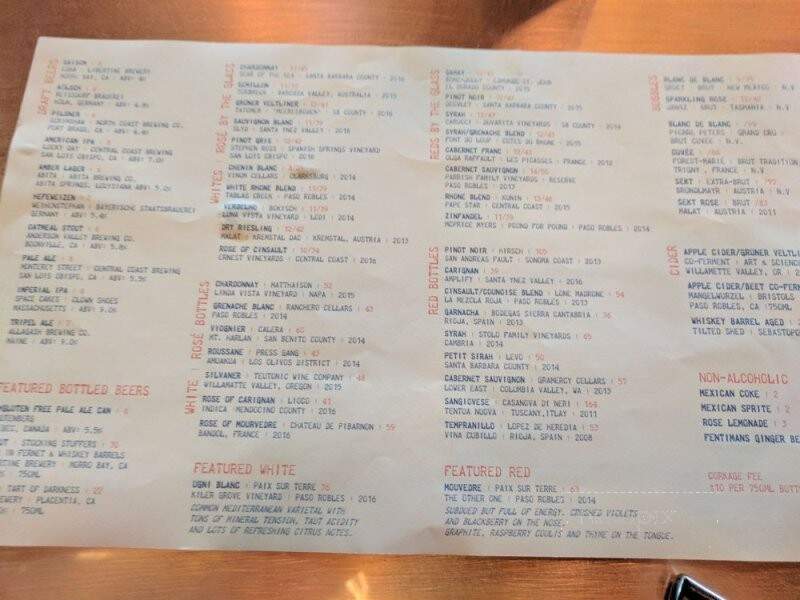 DRAFT BEERS
SAISON
LIBERTINE BREWERY
MORRO BAY, CA | ABV:
KÖLSCH
REISSDORF BRAUEREI
KÖLN, GERMANY | ABV: 4.8%
PILSNER
NORTH COAST BREWING CO.
FORT BRAGG, CA | ABV: 4.4%
AMERICAN IPA
LUCKY DAY | CENTRAL COAST BREWING
SAN LUIS OBISPO, CA | ABV: 7.0%
AMBER LAGER
ABITA | ABITA BREWING CO.
ABITA SPRINGS, LOUISIANA ABV: 5.0%
HEFEWEIZEN
WEIHENSTEPHAN | BAYERISCHE STAATSBRAUEREI
GERMANY | ABV: 5.4%
OATMEAL STOUT
ANDERSON VALLEY BREWING CO.
BOONVILLE, CA | ABV: 5.8%
PALE ALE
MONTEREY STREET | CENTRAL COAST BREWING
SAN LUIS OBISPO, CA | ABV: 5.5%
IMPERIAL IPA
SPACE CAKES | CLOWN SHOES
MASSACHUSETTS | ABV: 9.0%
TRIPEL ALE
ALLAGASH BREWING CO.
MAINE | ABV: 9.0%
FEATURED BOTTLED BEERS
GLUTEN FREE PALE ALE CAN | 6
CANADA | ABV: 5.5%
STUCKING STUFFERS | 70
IN FERNET & WHISKEY BARRELS
BREWERY | MORRO BAY, CA
750ML
TART OF DARKNESS | 22
BREWERY | PLACENTIA, CA
750ML
WHITES | ROSÉ BY THE GLASS
CHARDONNAY | 12/45
BEAR OF THE SEA | SANTA BARBARA COUNTY | 2016
SEMILLON | 11/39
TORBRECK | BAROSSA VALLEY, AUSTRALIA | 2015
GRÜNER VELTLINER | 12/41
TATOMER | "MEERESBODEN" | SB COUNTY | 2016
SAUVIGNON BLANC | 11/39
SANTA YNEZ VALLEY | 2016
PINOT GRIS | 12/42
STEPHEN ROSS | SPANISH SPRINGS VINEYARD
SAN LUIS OBISPO | 2016
CHENIN BLANC
VINUM CELLARS | CLARKSBURG | 2014
WHITE RHONE BLEND | 11/39
TABLAS CREEK | PASO ROBLES | 2014
VERDELHO | BOKISCH | 11/39
LUNA VISTA VINEYARD | LODI | 2014
DRY RIESLING | 12/42
MALAT | KREMSTAL DAC | KREMSTAL, AUSTRIA | 2013
ROSE OF CINSAULT | 10/34
ERNEST VINEYARDS | CENTRAL COAST | 2016
WHITE | ROSÉ BOTTLES
CHARDONNAY | MATTHAISON | 52
LINDA VISTA VINEYARD | NAPA | 2015
GRENACHE BLANC | RANCHERO CELLARS | 43
PASO ROBLES | 2014
VIOGNIER | CALERA | 60
MT. HARLAN | SAN BENITO COUNTY | 2014
ROUSSANE | PRESS GANG | 43
AMOAKUA | LOS OLIVOS DISTRICT | 2014
SILVANER | TEUTONIC WINE COMPANY | 46
WILLAMATTE VALLEY, OREGON | 2015
ROSE OF CARIGNAN | LIOCO | 41
INDICA | MENDOCINO COUNTY | 2016
ROSE OF MOURVEDRE | CHATEAU DE PIBARNON | 59
BANDOL, FRANCE | 2016
FEATURED WHITE
UGNI BLANC | PAIX SUR TERRE 76
KILER GROVE VINEYARD | PASO ROBLES | 2016
COMMON MEDITERRANEAN VARIETAL WITH
TONS OF MINERAL TENSION, TAUT ACIDITY
AND LOTS OF REFRESHING CITRUS NOTES.
REDS BY THE GLASS
GAMAY
EL DORADO COUNTY | 2015
PINOT NOIR | 12/41
SANTA BARBARA COUNTY | 2015
SYRAH
CARUCCI | DEAVRITA VINEYARDS | SB COUNTY | 2014
SYRAH/GRENACHE BLEND | 12/41
FONT DU LOUP | COTES DU RHONE | 2015
CABERNET FRANC | 12/42
OLGA RAFFAULT | LES PICASSES | FRANCE | 2012
CABERNET SAUVIGNON | 14/50
PARRISH FAMILY VINEYARDS | RESERVE
PASO ROBLES | 2013
RHONE BLEND | KUNIN | 13/46
PAPE STAR | CENTRAL COAST | 2015
ZINFANDEL | 11/39
MCPRICE MYERS | POUND FOR POUND | PASO ROBLES | 2014
RED BOTTLES
PINOT NOIR | HIRSCH | 105
SAN ANDREAS FAULT | SONOMA COAST | 2013
CARIGNAN | 39
AMPLIFY | SANTA YNEZ VALLEY | 2016
CINSAULT/COUNOISE BLEND | LONE MADRONE | 54
LA MEZCLA ROJA | PASO ROBLES | 2013
GARNACHA | BODEGAS SIERRA CANTABRIA | 36
RIOJA, SPAIN | 2013
SYRAH | STOLO FAMILY VINEYARDS | 65
CAMBRIA | 2014
PETIT SIRAH | LEVO | 50
SANTA BARBARA COUNTY | 2014
CABERNET SAUVIGNON | GRAMERCY CELLARS | 57
LOWER EAST | COLOMBIA VALLEY, WA | 2013
SANGIOVESE | CASANOVA DI NERI | 164
TENTUA NUOVA | TUSCANY, ITLAY | 2011
TEMPRANILLO | LOPEZ DE HEREDIA | 53
VINA CUBILLO | RIOJA, SPAIN | 2008
FEATURED RED
MOUVEDRE | PAIX SUR TERRE | 63
THE OTHER ONE | PASO ROBLES | 2014
SUBDUED BUT FULL OF ENERGY. CRUSHED VIOLETS
AND BLACKBERRY ON THE NOSE.
GRAPHITE, RASPBERRY COULIS AND THYME ON THE TONGUE.
BUBBLES
BLANC DE BLANC | 9/35
GRUET | BRUT | NEW MEXICO | N.V
SPARKLING ROSE | 12/42
JANSZ | BRUT | TASMANIA | N.V
BLANC DE BLANC | /99
PIERRE PETERS | GRAND CRU
BRUT CUVÉE | N.V.
CUVÉE | /66
FOREST-MARIE | BRUT TRADITION
TRIGNY, FRANCE | N.V
SEKT | EXTRA-BRUT | '92
BRÜNDLMAYR | AUSTRIA | N.V
SEKT ROSE | BRUT | /83
MALAT | AUSTRIA | 2011
CIDER
APPLE CIDER/GRÜNER VELTLI
CO-FERMENT | ART & SCIENC
WILLAMETTE VALLEY, OR | 2
APPLE CIDER/BEET CO-FERM
MANGELWURZEL | BRISTOLS
PASO ROBLES, CA | 750ML
WHISKEY BARREL AGED |
TILTED SHED | SEBASTOPO
NON-ALCOHOLIC
MEXICAN COKE | 2
MEXICAN SPRITE | 2
ROSE LEMONADE | 3
FENTIMANS GINGER BE
CORKAGE FEE
$10 PER 750ML BOTTL